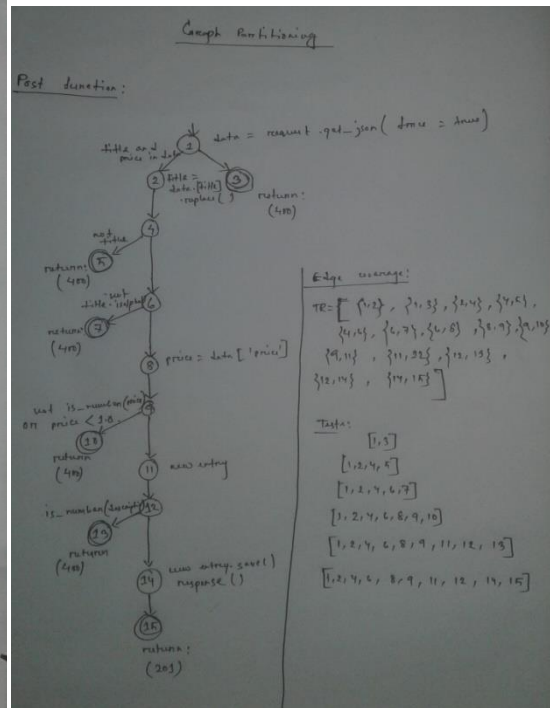 Graph Partitioning
Post function:
1
data = request.get_json(force = true)
title and
price in data
2
title =
data.[title]
.replace( )
3
return:
(400)
4
not
title
5
return:
(400)
6
not
title.isalpha(
7
return:
(400)
8
price = data['price']
not is_number(price)
or price < 1.0
9
10
return
(400)
11
new entry
is_number(description)
12
13
return
(400)
14
new entry.save()
response()
15
return:
(201)
Edge coverage:
TR=[ {1,2} , {1,3} , {2,4} , {4,5},
{4,6}, {6,7}, {6,8} , {8,9} , {9,10}
{9,11} , {11,12} , {12,13} ,
{12,14} , {14,15} ]
Tests:
[1,3]
[1,2,4,5]
[1,2,4,6,7]
[1,2,4,6,8,9,10]
[1,2,4,6,8,9,11,12,13]
[1,2,4,6,8,9,11,12,14,15]